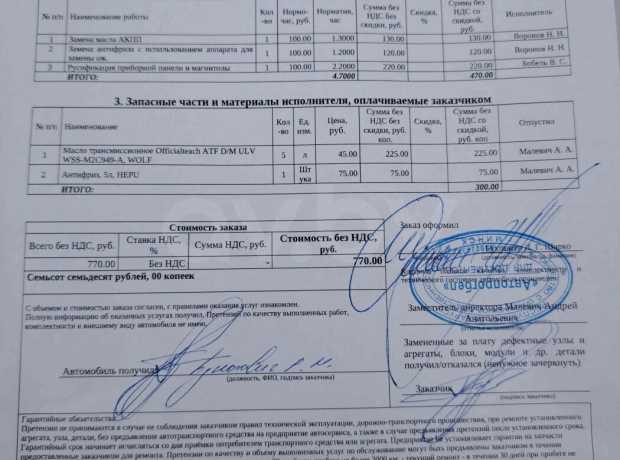 № п/п Наименование работы Кол-во Нормо-час, руб. Норматив, час Сумма без НДС без скидки, руб. Скидка, % Сумма без НДС со скидкой, руб Исполнитель
1 Замена масла АКПП 1 100.00 1.3000 130.00 130.00 Воронов Н. Н.
2 Замена антифриза с использованием аппарата для замены ож. 1 100.00 1.2000 120.00 120.00 Воронов Н. Н.
3 Русификация приборной панели и магнитолы 1 100.00 2.2000 220.00 220.00 Бобель В. С.
ИТОГО: 4.7000 470.00
3. Запасные части и материалы исполнителя, оплачиваемые заказчиком
№ п/п Наименование Кол-во Ед. изм. Цена, руб. Сумма без НДС без скидки, руб. коп. Скидка, % Сумма без НДС со скидкой, руб. коп Отпустил
1 Масло трансмиссионное Officialteach ATF D/M ULV WSS-M2C949-A, WOLF 5 л 45.00 225.00 225.00 Малевич А. А.
2 Антифриз, 5л, HEPU 1 Штука 75.00 75.00 75.00 Малевич А. А.
ИТОГО: 300.00
Стоимость заказа
Всего без НДС, руб. Ставка НДС, % Сумма НДС, руб. Стоимость без НДС, руб.
770.00 Без НДС - 770.00
Семьсот семьдесят рублей, 00 копеек
Заказ оформил
«Автопротеп»
Заместитель директора Малевич Андрей
Анатольевич
С объемом и стоимостью заказа согласен, с правилами оказания услуг ознакомлен.
Полную информацию об оказанных услугах получил. Претензий по качеству выполненных работ,
комплектности и внешнему виду автомобиля не имею.
Автомобиль получил
(должность, ФИО, подпись заказчика)
Замененные за плату дефектные узлы и
агрегаты, блоки, модули и др. детали
получил/отказался (ненужное зачеркнуть)
Заказчик
(подпись заказчика)
Гарантийные обязательства:
Претензии не принимаются в случае не соблюдения заказчиком правил технической эксплуатации, дорожно-транспортного происшествия, при ремонте установленного
агрегата, узла, детали, без предъявления автотранспортного средства на предприятие автосервиса, а также в случае предъявления претензий после установленного срока.
Гарантийный срок начинает исчисляться со дня приёмки потребителем транспортного средства или агрегата. Предприятие не устанавливает гарантии на запчасти
предоставленные заказчиком для ремонта. Претензии по качеству и объему выполненных услуг по обслуживанию могут быть предъявлены заказчиком в течение